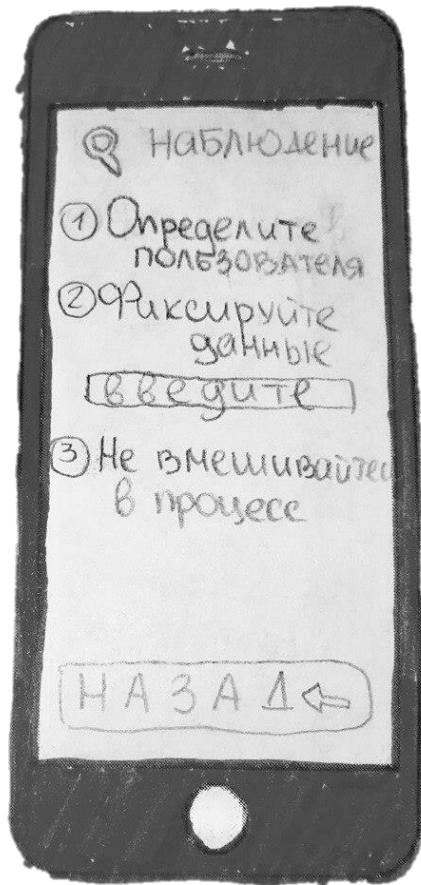 НАБЛЮДЕНИЕ
1 Определите
пользователя
2 Фиксируйте
данные
введите
3 Не вмешивайтесь
в процесс
НАЗАД